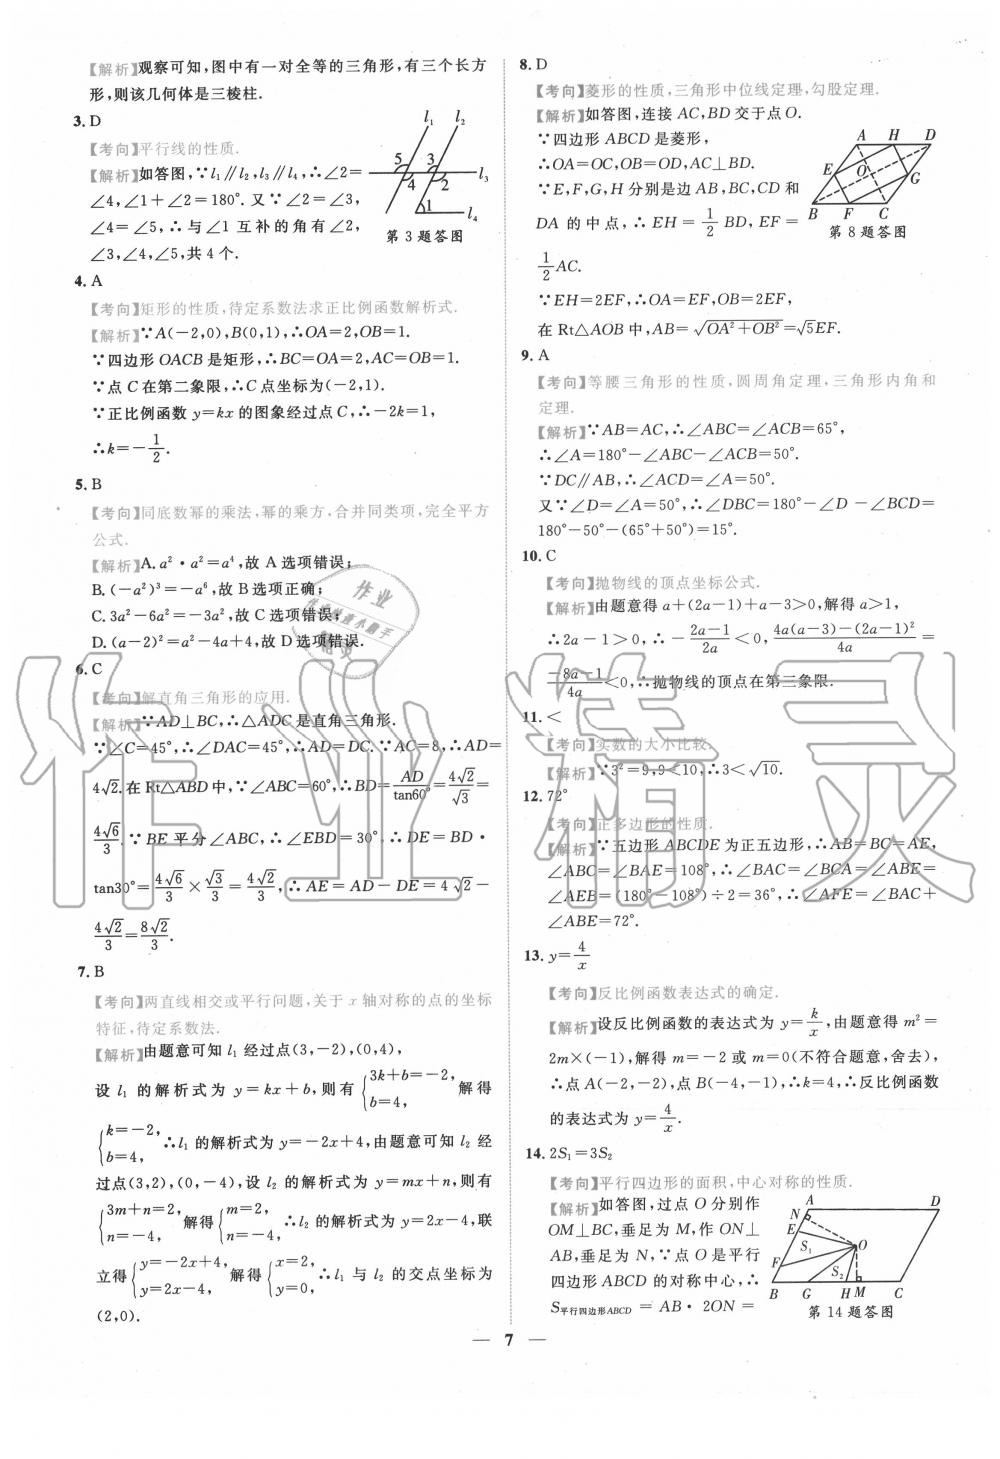 【解析】观察可知,图中有一对全等的三角形,有三个长方
形,则该几何体是三棱柱.
3. D
【考向】平行线的性质.
【解析】如答图,∵l₁∥l₂,l₃∥l₄,∴∠2=
∠4,∠1+∠2=180°. 又∵∠2=∠3,
∠4=∠5,∴与∠1 互补的角有∠2,
∠3,∠4,∠5,共 4 个.
l₁ l₂
5 3
4 2 l₃
1 l₄
第 3 题答图
4. A
【考向】矩形的性质,待定系数法求正比例函数解析式.
【解析】∵A(-2,0),B(0,1),∴OA=2,OB=1.
∵四边形 OACB 是矩形,∴BC=OA=2,AC=OB=1.
∵点 C 在第二象限,∴C 点坐标为(-2,1).
∵正比例函数 y=kx 的图象经过点 C,∴-2k=1,
∴k=-1/2.
5. B
【考向】同底数幂的乘法,幂的乘方,合并同类项,完全平方
公式.
【解析】A. a²·a²=a⁴,故 A 选项错误;
B. (-a²)³=-a⁶,故 B 选项正确;
C. 3a²-6a²=-3a²,故 C 选项错误;
D. (a-2)²=a²-4a+4,故 D 选项错误.
6. C
【考向】解直角三角形的应用.
【解析】∵AD⊥BC,∴△ADC 是直角三角形.
∵∠C=45°,∴∠DAC=45°,∴AD=DC. ∵AC=8,∴AD=
4√2. 在 Rt△ABD 中,∵∠ABC=60°,∴BD=AD/tan60°=4√2/√3=
4√6/3. ∵BE 平分∠ABC,∴∠EBD=30°,∴DE=BD·
tan30°=4√6/3×√3/3=4√2/3,∴AE=AD-DE=4√2-
4√2/3=8√2/3.
7. B
【考向】两直线相交或平行问题,关于 x 轴对称的点的坐标
特征,待定系数法.
【解析】由题意可知 l₁ 经过点(3,-2),(0,4),
设 l₁ 的解析式为 y=kx+b,则有{3k+b=-2, b=4, 解得
{k=-2, b=4, ∴l₁ 的解析式为 y=-2x+4,由题意可知 l₂ 经
过点(3,2),(0,-4),设 l₂ 的解析式为 y=mx+n,则有
{3m+n=2, n=-4, 解得{m=2, n=-4, ∴l₂ 的解析式为 y=2x-4,联
立得{y=-2x+4, y=2x-4, 解得{x=2, y=0, ∴l₁ 与 l₂ 的交点坐标为
(2,0).
8. D
【考向】菱形的性质,三角形中位线定理,勾股定理.
【解析】如答图,连接 AC,BD 交于点 O.
∵四边形 ABCD 是菱形,
∴OA=OC,OB=OD,AC⊥BD.
∵E,F,G,H 分别是边 AB,BC,CD 和
DA 的中点,∴EH=1/2 BD,EF=
1/2 AC.
A H D
E O G
B F C
第 8 题答图
∵EH=2EF,∴OA=EF,OB=2EF,
在 Rt△AOB 中,AB=√OA²+OB²=√5EF.
9. A
【考向】等腰三角形的性质,圆周角定理,三角形内角和
定理.
【解析】∵AB=AC,∴∠ABC=∠ACB=65°,
∴∠A=180°-∠ABC-∠ACB=50°.
∵DC∥AB,∴∠ACD=∠A=50°.
又∵∠D=∠A=50°,∴∠DBC=180°-∠D-∠BCD=
180°-50°-(65°+50°)=15°.
10. C
【考向】抛物线的顶点坐标公式.
【解析】由题意得 a+(2a-1)+a-3>0,解得 a>1,
∴2a-1>0,∴-2a-1/2a<0,4a(a-3)-(2a-1)²/4a=
-8a-1/4a<0,∴抛物线的顶点在第三象限.
11. <
【考向】实数的大小比较.
【解析】∵3²=9,9<10,∴3<√10.
12. 72°
【考向】正多边形的性质.
【解析】∵五边形 ABCDE 为正五边形,∴AB=BC=AE,
∠ABC=∠BAE=108°,∴∠BAC=∠BCA=∠ABE=
∠AEB=(180°-108°)÷2=36°,∴∠AFE=∠BAC+
∠ABE=72°.
13. y=4/x
【考向】反比例函数表达式的确定.
【解析】设反比例函数的表达式为 y=k/x,由题意得 m²=
2m×(-1),解得 m=-2 或 m=0(不符合题意,舍去),
∴点 A(-2,-2),点 B(-4,-1),∴k=4,∴反比例函数
的表达式为 y=4/x.
14. 2S₁=3S₂
【考向】平行四边形的面积,中心对称的性质.
【解析】如答图,过点 O 分别作
OM⊥BC,垂足为 M,作 ON⊥
AB,垂足为 N,∵点 O 是平行
四边形 ABCD 的对称中心,∴
S平行四边形ABCD=AB·2ON=
A D
N
E
S₁ O
F S₂
B G H M C
第 14 题答图
7
作业精灵